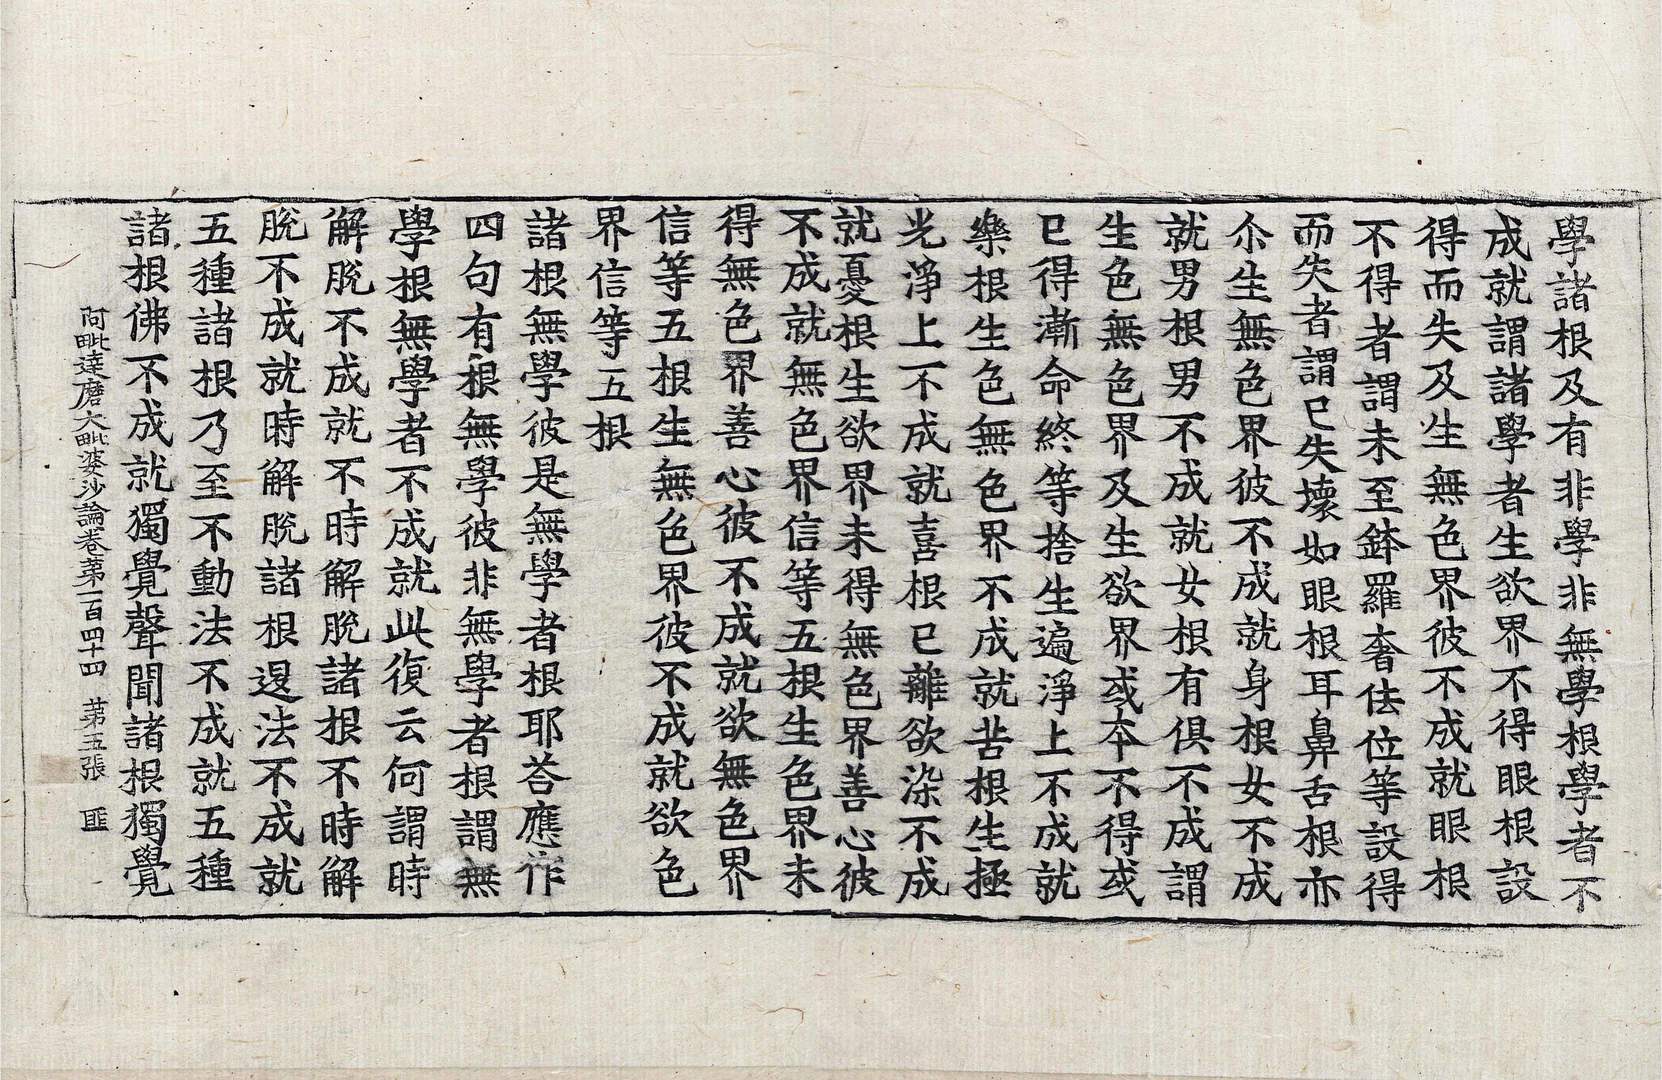 學諸根及有非學非無學根學者不
成就謂諸學者生欲界不得眼根設
得而失及生無色界彼不成就眼根
不得者謂未至鉢羅奢佉位等設得
而失者謂已失壞如眼根耳鼻舌根亦
尒生無色界彼不成就身根女不成
就男根男不成就女根有俱不成謂
生色無色界及生欲界或本不得或
已得漸命終等捨生遍淨上不成就
樂根生色無色界不成就苦根生極
光淨上不成就喜根已離欲染不成
就憂根生欲界未得無色界善心彼
不成就無色界信等五根生色界未
得無色界善心彼不成就欲無色界
信等五根生無色界彼不成就欲色
界信等五根
諸根無學彼是無學者根耶荅應作
四句有根無學彼非無學者根謂無
學根無學者不成就此復云何謂時
解脫不成就不時解脫諸根不時解
脫不成就時解脫諸根退法不成就
五種諸根乃至不動法不成就五種
諸根佛不成就獨覺聲聞諸根獨覺
阿毗達磨大毗婆沙論卷苐一百四十四 苐五張 匪